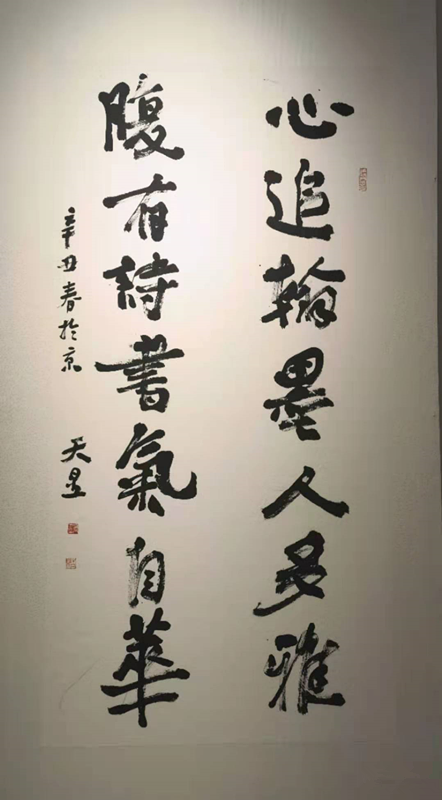 心追翰墨人多雅
腹有詩書氣自華
辛丑春於京
天昱